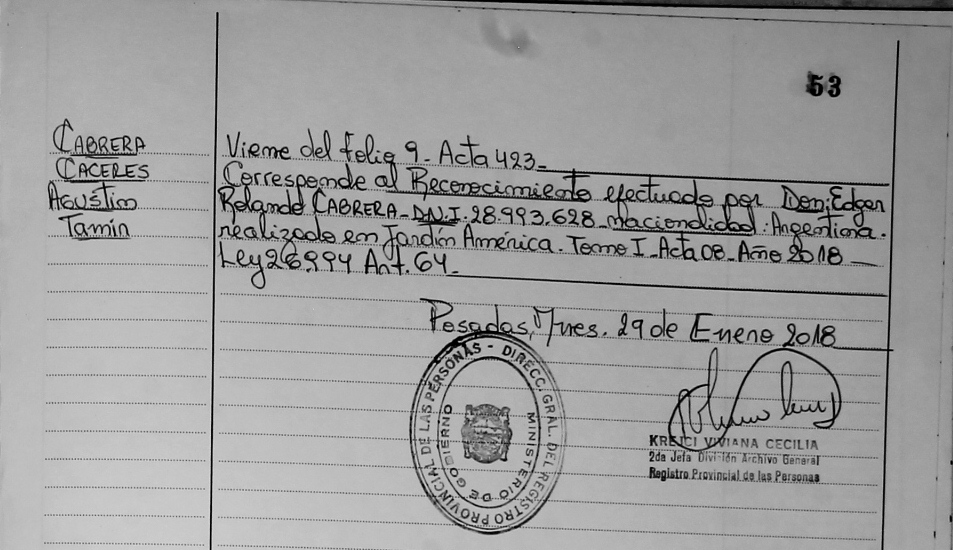 53
CABRERA
CACERES
Agustín
Tamín
Viene del folio 9 - Acta 423_
Corresponde al Reconocimiento efectuado por Don: Edgar
Rolando CABRERA - D.N.I. 28.993.628 nacionalidad: Argentina.
realizado en Jardín América. Tomo I - Acta 08 - Año 2018 —
Ley 26.994 Art. 64_
Posadas, Mnes. 29 de Enero 2018
DIRECC. GRAL. DEL REGISTRO PROVINCIAL DE LAS PERSONAS -
MINISTERIO DE GOBIERNO
KREJCI VIVIANA CECILIA
2da Jefa División Archivo General
Registro Provincial de las Personas